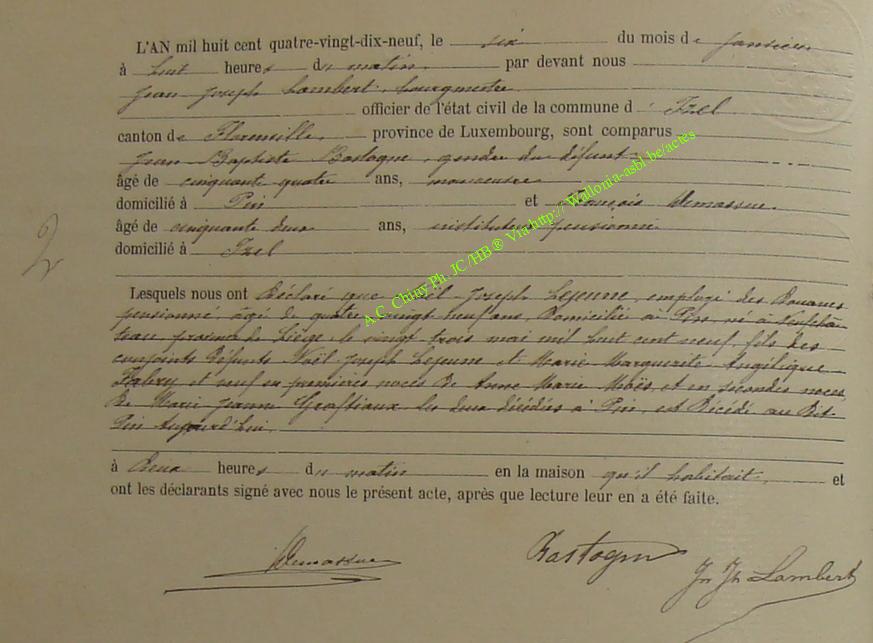 L'AN mil huit cent quatre-vingt-dix-neuf, le six du mois de janvier
à huit heures du matin par devant nous
Jean Joseph Lambert, bourgmestre
officier de l'état civil de la commune d'Izel
canton de Florenville province de Luxembourg, sont comparus
Jean Baptiste Bastogne, gendre du défunt
âgé de cinquante quatre ans,
domicilié à Pin et François Demasue
âgé de cinquante deux ans, instituteur pensionné
domicilié à Izel
2
Lesquels nous ont Déclaré que Noël Joseph Lejeune, employé des Douanes
pensionné, âgé de quatre vingt neuf ans, Domicilié à Pin, né à Neufchâ
teau province de Liège, le vingt trois mai mil huit cent neuf, fils des
conjoints Défunts Noël Joseph Lejeune et Marie Marguerite Angélique
Fabry et veuf en premières noces De Anne Marie et en secondes noces
De Marie Jeanne les deux décédés à Pin, est Décédé au Dit
Pin aujourd'hui
à Deux heures du matin en la maison qu'il habitait, et
ont les déclarants signé avec nous le présent acte, après que lecture leur en a été faite.
Demasue Bastogne Jn Jh Lambert
A.C. Chiny Ph. JC /HB ® Via http:// Wallonia-asbl.be/actes